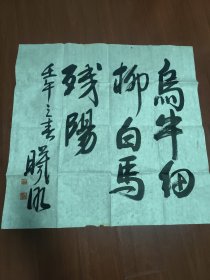 烏牛細
柳白馬
殘陽
壬午之春